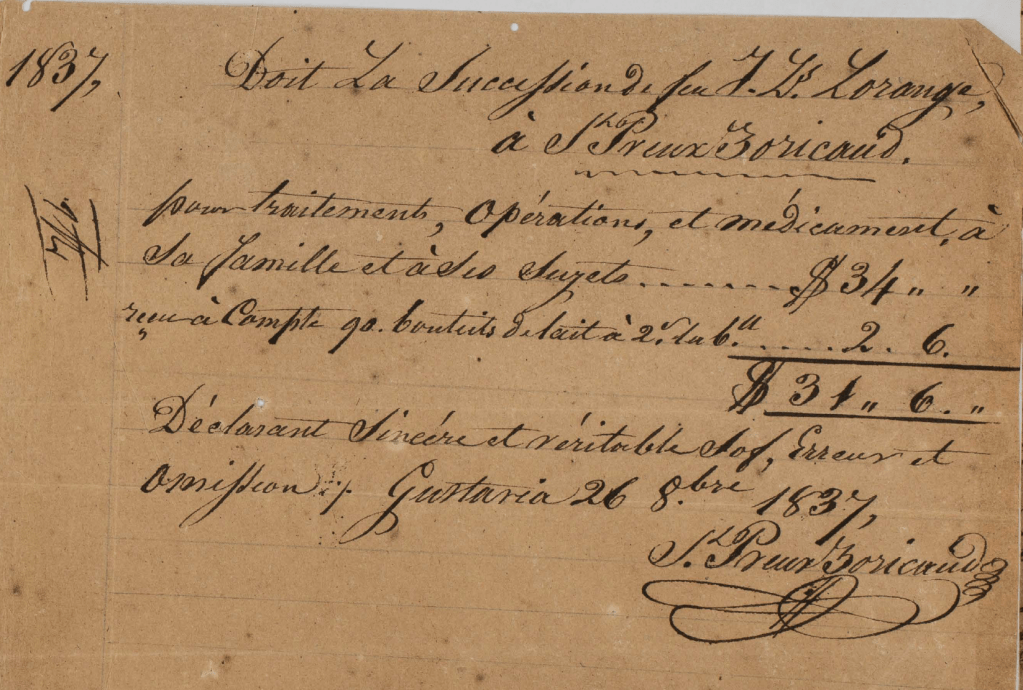 1837,
Doit La Succession de feu J. Bs. Lorange,
à St. Preux Zoricaud.
pour traitements, Opérations, et médicament, à
Sa famille et à Ses Sujets ........ $ 34 „ „
reçu à Compte 90. bouteils de lait à 2.d la b.ll ..... 2. 6.
$ 31 „ 6. „
Déclarant Sincère et véritable Sof, Erreur et
Omission ./. Gustavia 26 8.bre 1837,
St. Preux Zoricaud